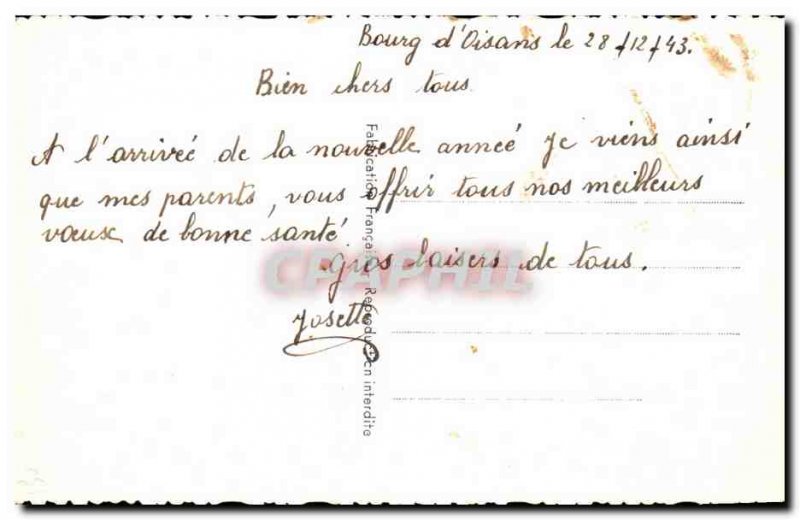 Bourg d'Oisans le 28/12/43.
Bien chers tous
A l'arrivée de la nouvelle année je viens ainsi
que mes parents, vous offrir tous nos meilleurs
vœux de bonne santé
Gros baisers de tous.
Josette
Fabrication Française Reproduction interdite
CPAPHIL